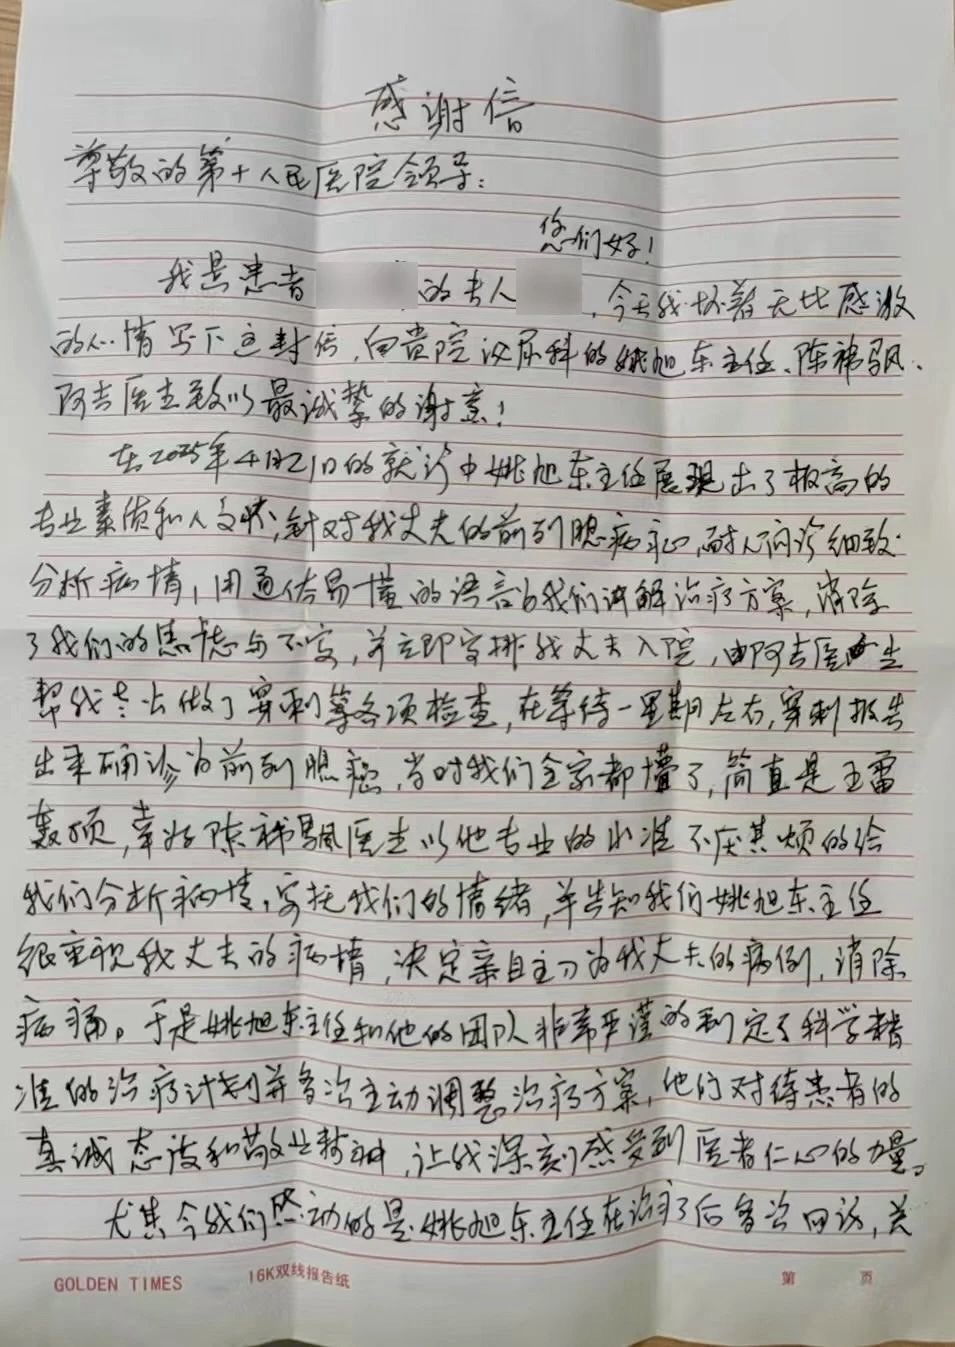 感谢信
尊敬的第十人民医院领导：
您们好！
我是患者 的夫人 ，今天我怀着无比感激
的心情写下这封信，向贵院泌尿科的姚旭东主任、陈祎飒、
阿吉医生致以最诚挚的谢意！
在2025年4月21日的就诊中姚旭东主任展现出了极高的
专业素质和人文怀，针对我丈夫的前列腺病症，耐心问诊细致
分析病情，用通俗易懂的语言为我们讲解治疗方案，消除
了我们的思虑与不安，并立即安排我丈夫入院，由阿吉医生
帮我丈夫做了穿刺等各项检查，在等待一星期左右，穿刺报告
出来确诊为前列腺癌，当时我们全家都懵了，简直是五雷
轰顶，幸好陈祎飒医生以他专业的水准不厌其烦的给
我们分析病情，安抚我们的情绪，并告知我们姚旭东主任
很重视我丈夫的病情，决定亲自主刀为我丈夫的病例，消除
病痛。于是姚旭东主任和他的团队非常严谨的制定了科学精
准的治疗计划并多次主动调整治疗方案，他们对待患者的
真诚态度和敬业精神，让我深刻感受到医者仁心的力量。
尤其令我们感动的是姚旭东主任在治疗后多次回访，关
GOLDEN TIMES 16K双线报告纸 第 页